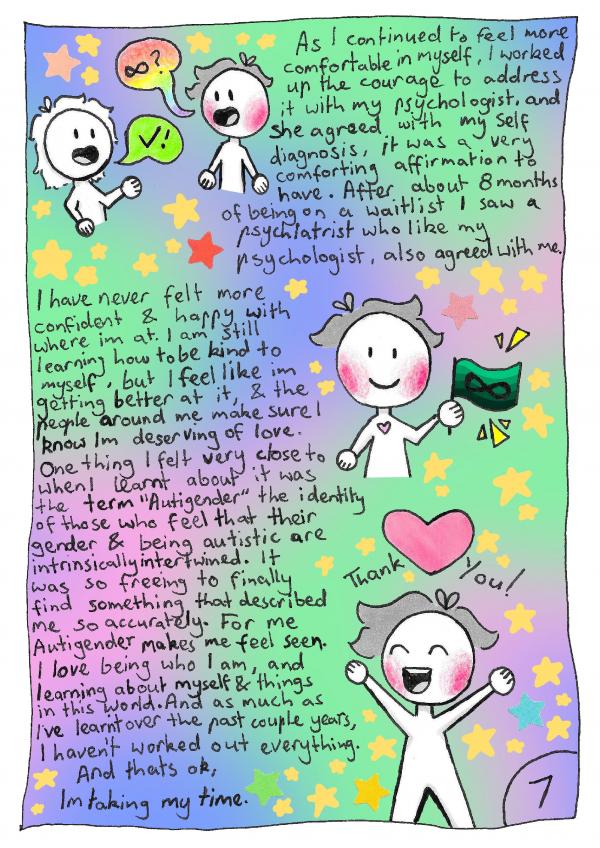 ∞?
✓!
As I continued to feel more
comfortable in myself, I worked
up the courage to address
it with my psychologist, and
she agreed with my self
diagnosis, it was a very
comforting affirmation to
have. After about 8 months
of being on a waitlist I saw a
psychiatrist who like my
psychologist, also agreed with me.
I have never felt more
confident & happy with
where im at. I am still
learning how to be kind to
myself, but I feel like im
getting better at it, & the
people around me make sure I
know Im deserving of love.
One thing I felt very close to
when I learnt about it was
the term "Autigender" the identity
of those who feel that their
gender & being autistic are
intrinsically intertwined. It
was so freeing to finally
find something that described
me so accurately. For me
Autigender makes me feel seen.
I love being who I am, and
learning about myself & things
in this world. And as much as
I've learnt over the past couple years,
I haven't worked out everything.
And thats ok,
Im taking my time.
Thank You!
7